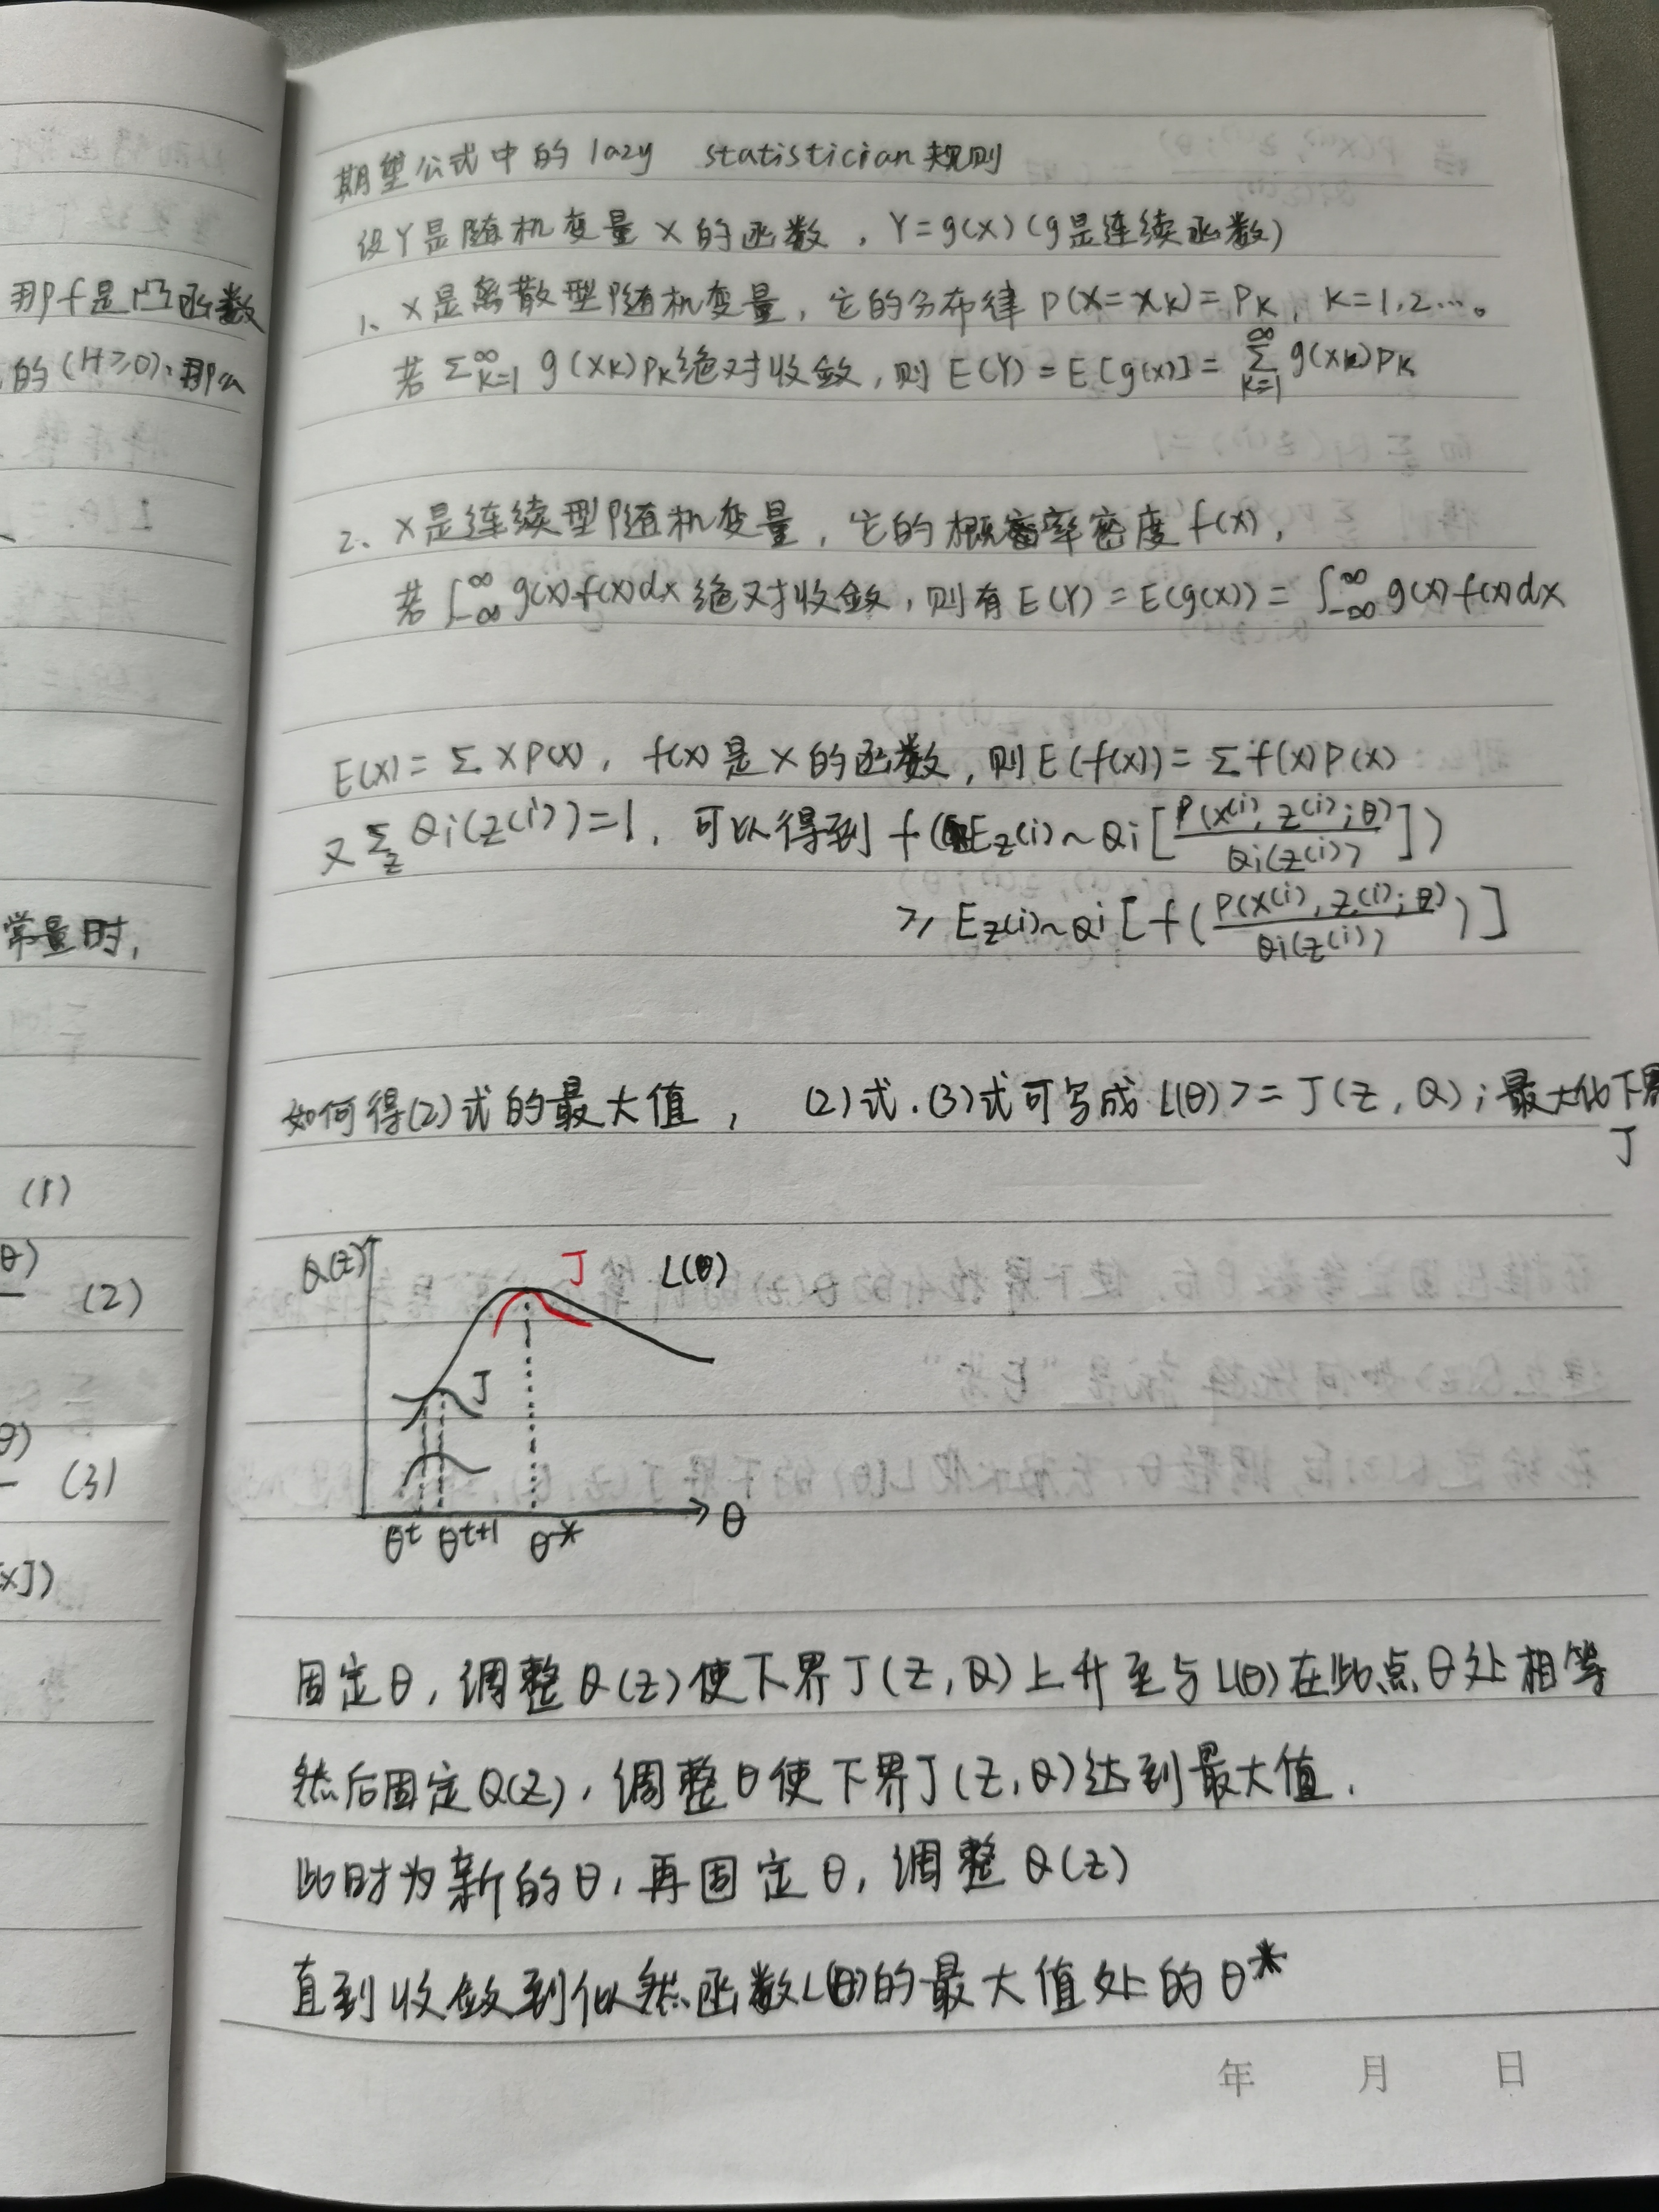 那p f是凸函数
的(H≥0).那么
常量时,
(1)
θ)
(2)
θ)
(3)
[x])
期望公式中的 lazy statistician 规则
设Y是随机变量X的函数，Y=g(X)(g是连续函数)
1、X是离散型随机变量，它的分布律 P(X=xk)=Pk, K=1,2…。
若 Σ_{k=1}^∞ g(xk)Pk绝对收敛,则 E(Y)=E[g(x)]=Σ_{k=1}^∞ g(xk)Pk
2、X是连续型随机变量，它的概率密度f(x),
若 ∫_{-∞}^{∞} g(x)f(x)dx 绝对收敛,则有E(Y)=E(g(x))=∫_{-∞}^{∞} g(x)f(x)dx
E(X)=Σ X P(X), f(x)是X的函数,则E(f(x))=Σf(x)P(x)
又Σ_z Qi(z(i))=1, 可以得到 f(E_{z(i)~Qi}[P(x(i), z(i);θ)/Qi(z(i))])
≥ E_{z(i)~Qi}[f(P(x(i), z(i);θ)/Qi(z(i)))]
如何得(2)式的最大值, (2)式.(3)式可写成 L(θ)>=J(Z,Q);最大化下界
J
Q(z) J L(θ)
J
θ
θ^t θ^{t+1} θ*
固定θ,调整Q(z)使下界J(Z,Q)上升至与L(θ)在此点θ处相等
然后固定Q(z),调整θ使下界J(Z,Q)达到最大值.
此时为新的θ,再固定θ,调整Q(z)
直到收敛到似然函数L(θ)的最大值处的θ*
年 月 日